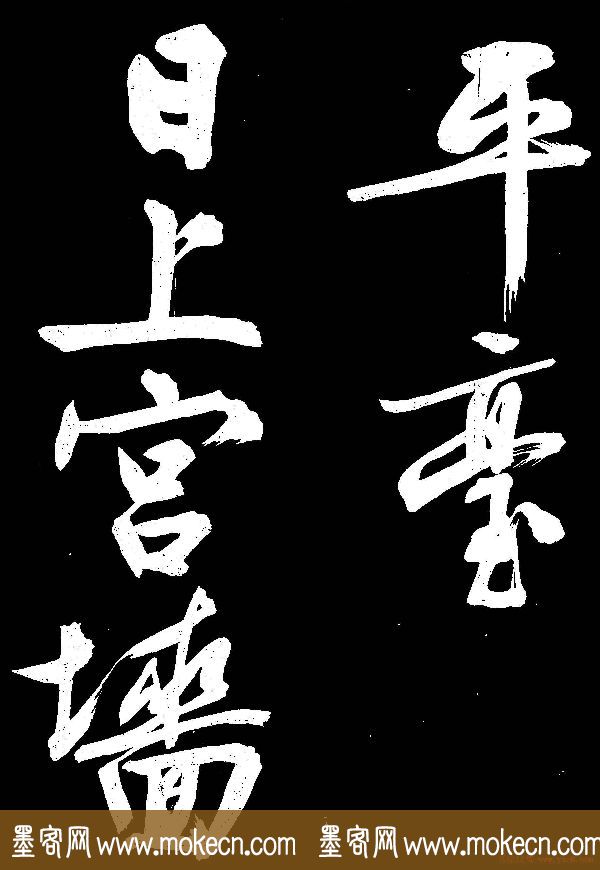 平臺
日上宮墻
墨客网 www.mokecn.com 墨客网 www.mokecn.com